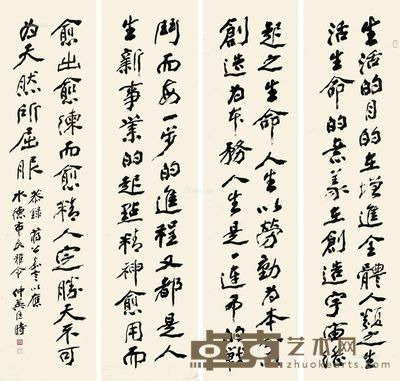 生活的目的在增進全體人類之生
活生命的意義在創造宇宙繼
起之生命人生以勞動為本
創造為本務人生是一連串的戰
鬥而每一步的進程又都是人
生新事業的起點精神愈用而
愈出愈練而愈精人定勝天不可
為天然所屈服
恭錄蔣公嘉言以應
水德市長雅令
艺术网